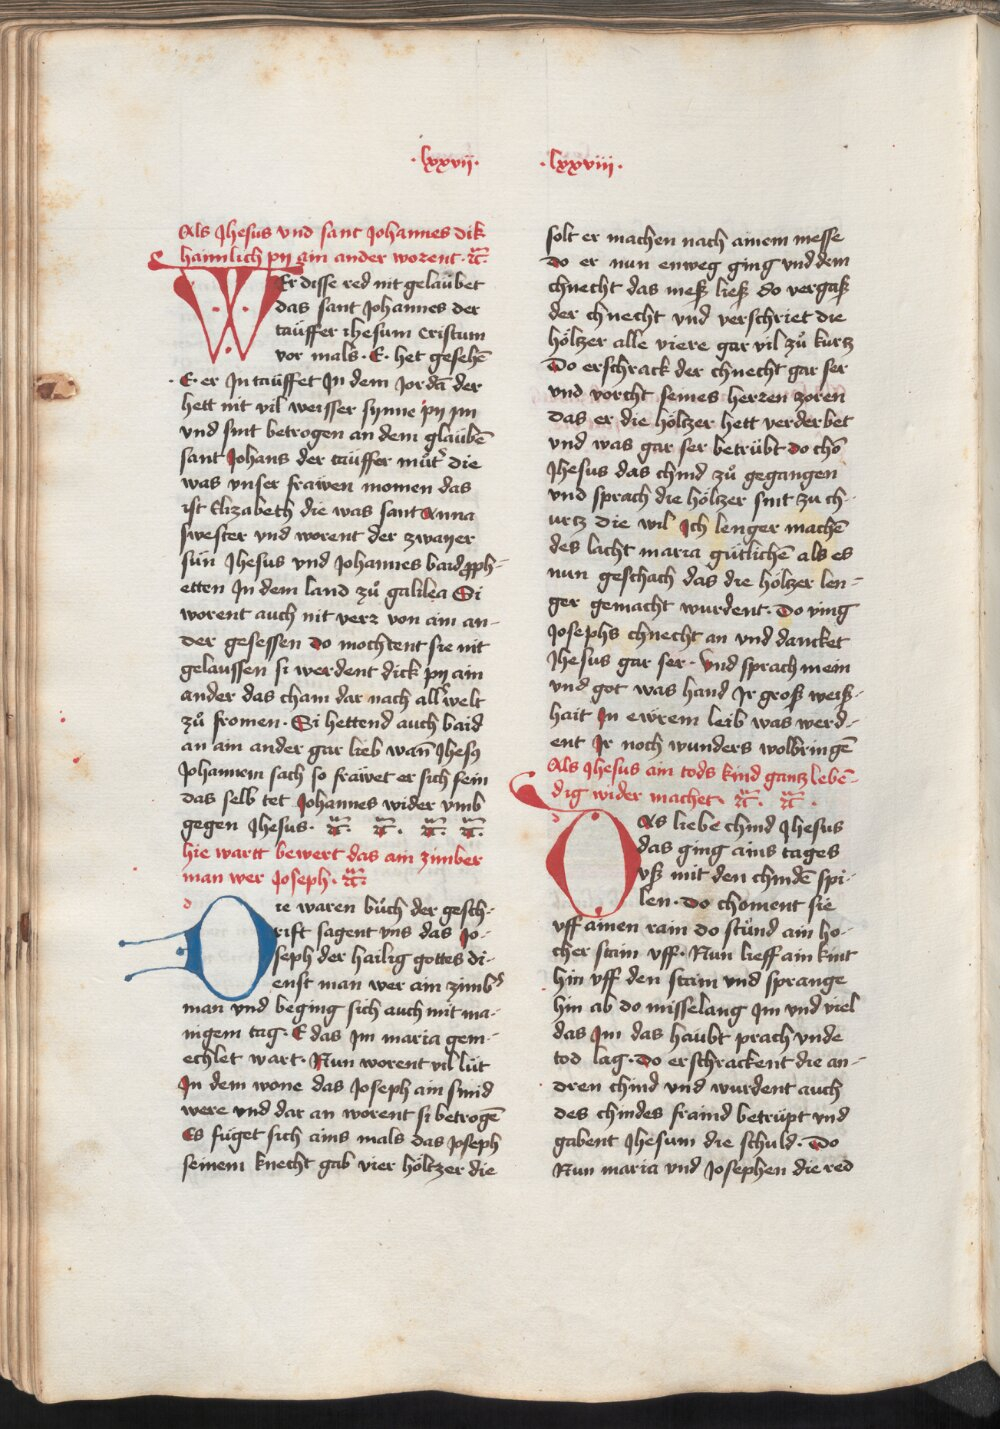 · lxxvii ·
Als Jhesus vnd sant Johannes dik
hainnlich pÿ ain ander worent · ꝛc̃
WEr disse red nit gelaŭbet
das sant Johannes der
taŭffer ihesum cristum
vor mals · E · het gesehē
· E · er Jn taŭffet Jn dem Jordā der
hett nit vil weisser sÿnne pÿ im
vnd sint betrogen an dem glaŭbē
sant Johans der taŭffer mŭt᷑ die
was vnser frawen momen das
ist Elizabeth die was sant Anna
swester vnd worent der zwaÿer
sŭn Jhesus vnd Johannes baid ꝓph-
etten Jn dem land zuͦ galilea Si
worent auch nit verz von ain an-
der gesessen do mochtent sie nit
gelaussen si werdent dick pÿ ain
ander das cham dar nach all᷑ welt
zuͦ fromen · Si hettend auch baid
an ain ander gar lieb wan̄ Jhesꝰ
Johannem sach so frawet er sich sein
das selb tet Johannes wider vmb
gegen Jhesus · ꝛc̃ · ꝛc̃ · ꝛc̃ · ꝛc̃ ·
hie wartt bewert das ain zimber
man wer Joseph · ꝛc̃
DIe waren bŭch der gesch-
rift sagent vns das Jo-
seph der hailig gottes di-
enst man wer ain zimb᷑
man vnd beging sich auch mit ma-
nigem tag · E das Jm maria gem-
echlet wart · Nun worent vil lŭt
Jn dem wone das Joseph ain smid
were vnd dar an worent si betrogē
Es fŭget sich ains mals das Joseph
seinem knecht gab vier hoͤltzer die
· lxxviii ·
solt er machen nach ainem messe
do er nun enweg ging vnd dem
chnecht das meß ließ do vergaß
der chnecht vnd verschriet die
hoͤltzer alle viere gar vil zuͦ kurtz
Do erschrack der chnecht gar ser
vnd vorcht seines herren zoren
das er die hoͤltzer hett verderbet
vnd was gar ser betrŭbt do chō
Jhesus das chind zuͦ gegangen
vnd sprach die hoͤltzer sint zu ch-
urtz die wil Jch lenger machē
des lacht maria gŭtlichē als es
nun geschach das die hoͤltzer len-
ger gemacht wurdent · Do ving
Josephs chnecht an vnd dancket
Jhesus gar ser · Vnd sprach mein
vnd got was hand Jr groß weiß-
hait Jn ewrem leib was werd-
ent Jr noch wunders wolbringē
Als Jhesus ain tods kind gantz lebē-
dig wider machet · ꝛc̃ · ꝛc̃ ·
DAs liebe chind Jhesus
das ging ains tages
vß mit den chindē spi-
len · Do choment sie
vff ainen rain do stŭnd ain ho-
cher stain vff · Nun lieff ain kint
hin vff den stain vnd sprange
hin ab do misselang Jm vnd viel
das Jm das haŭbt prach vnde
tod lag · Do erschrackent die an-
dren chind vnd wurdent auch
des chindes fraind betrŭpt vnd
gabent Jhesum die schuld · Do
Nun maria vnd Josephen die red